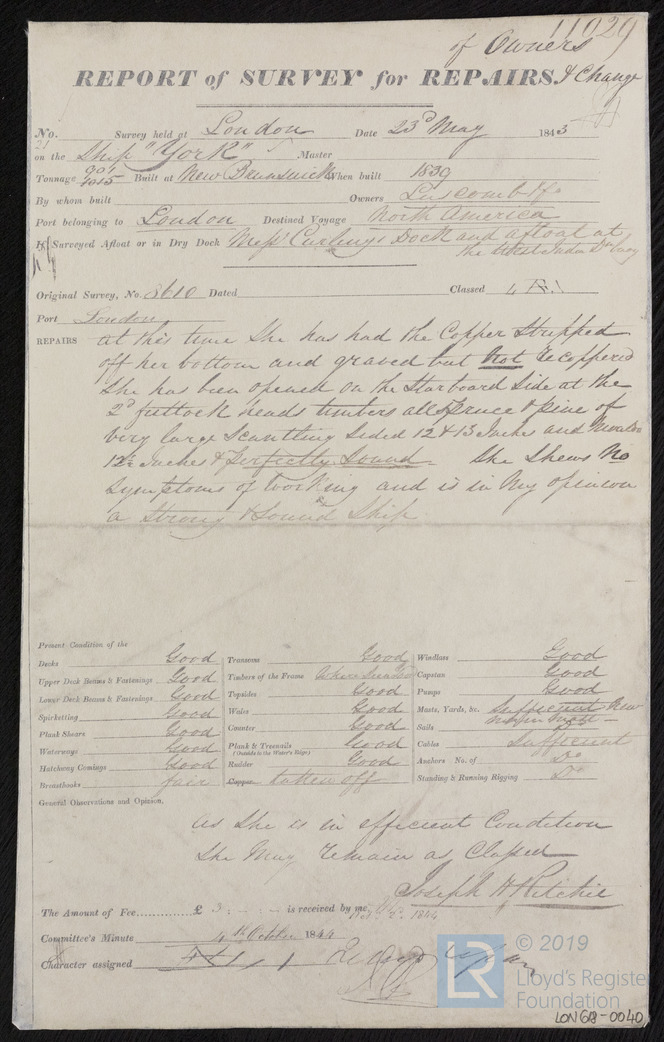 11029
of Owners
REPORT of SURVEY for REPAIRS. & Change
No. Survey held at London Date 23d May 1843
21
on the Ship "York" Master
Tonnage 1015 Built at New Brunswick When built 1839
By whom built Owners Luscomb & Co
Port belonging to London Destined Voyage North America
If Surveyed Afloat or in Dry Dock Messrs Curlings Dock and afloat at
the West India
Original Survey, No. 8610 Dated Classed
Port London
REPAIRS at this time She has had the Copper Stripped
off her bottom and graved but not Recoppered
She has been opened on the Starboard Side at the
2d futtock heads timbers all Spruce & pine of
very large Scantling Sided 12 & 13 Inches and
12½ Inches & perfectly Sound She Shews No
Symptoms of working and is in My opinion
a Strong & Sound Ship
Present Condition of the
Decks Good Transoms Good Windlass Good
Upper Deck Beams & Fastenings Good Timbers of the Frame where seen Good Capstan Good
Lower Deck Beams & Fastenings Good Topsides Good Pumps Good
Spirketting Good Wales Good Masts, Yards, &c. Sufficient New
Plank Shears Good Counter Good Sails
Waterways Good Plank & Treenails Good Cables Sufficient
(Outside in the Water's Edge)
Hatchway Comings Good Rudder Good Anchors No. of Do
Breasthooks fair Copper taken off Standing & Running Rigging Do
General Observations and Opinion,
as She is in efficient Condition
She May remain as Classed
Joseph H Ritchie
The Amount of Fee £ 3 is received by me,
1844
Committee's Minute 4th October 1844
Character assigned
LR © 2019
Lloyd's Register
Foundation
LON618-0040